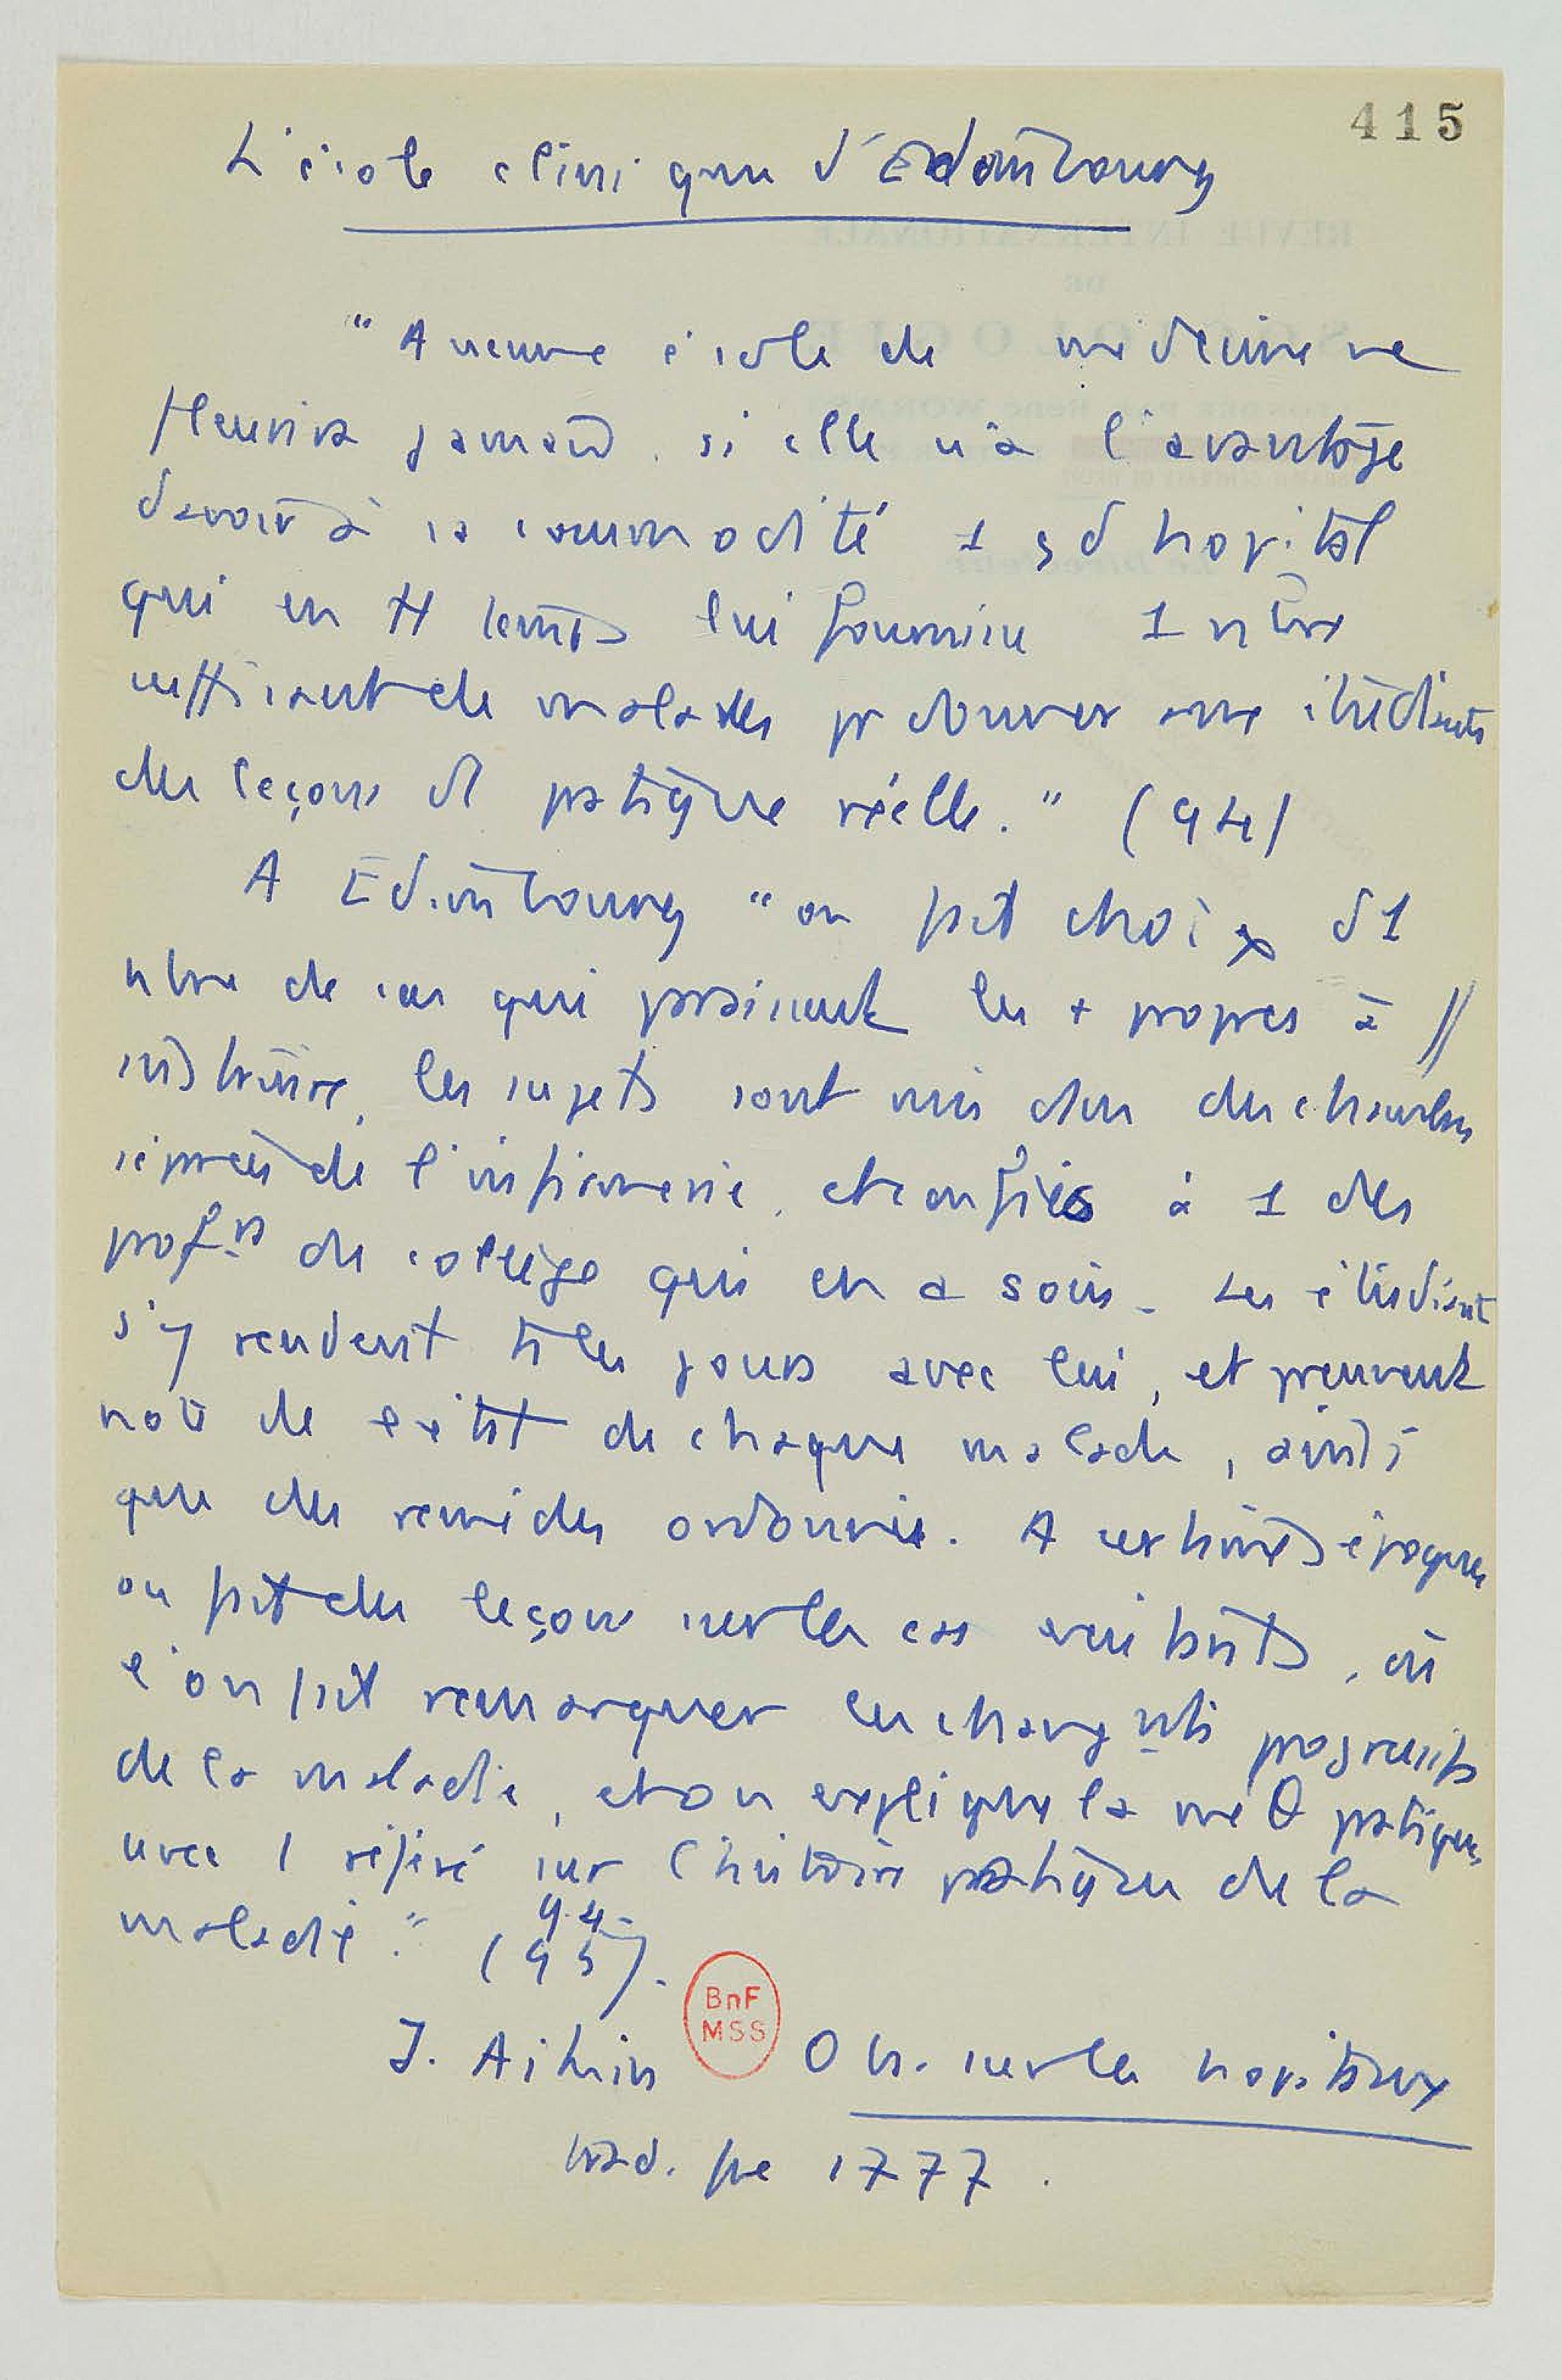 415
L'école clinique d'Edimbourg
"Aucune école de médecine ne
fleurira jamais, si elle n'a l'avantage
d'avoir à sa commodité 1 gd hopital
qui en tt temps lui fournisse 1 nbre
suffisant de malades pr donner aux étudiants
des leçons d pratique réelle." (94)
A Edimbourg "on fait choix d'1
nbre de cas qui paraissent les + propres à //
instruire, les sujets sont mis dans des chambres
séparées de l'infirmerie, et confiés à 1 des
profrs du collège qui en a soin. Les étudiant
s'y rendent ts les jours avec lui, et prennent
note de l'état de chaque malade, ainsi
que des remèdes ordonnés. A certaines époques
on fait des leçons sur les cas existants, où
l'on fait remarquer les changmts progressifs
de la maladie, et on explique la méθ pratique,
avec 1 résumé sur l'histoire pratique de la
maladie." (94-
95).
J. Aikin Obs. sur les hopitaux
BnF
MSS
trad. fse 1777.